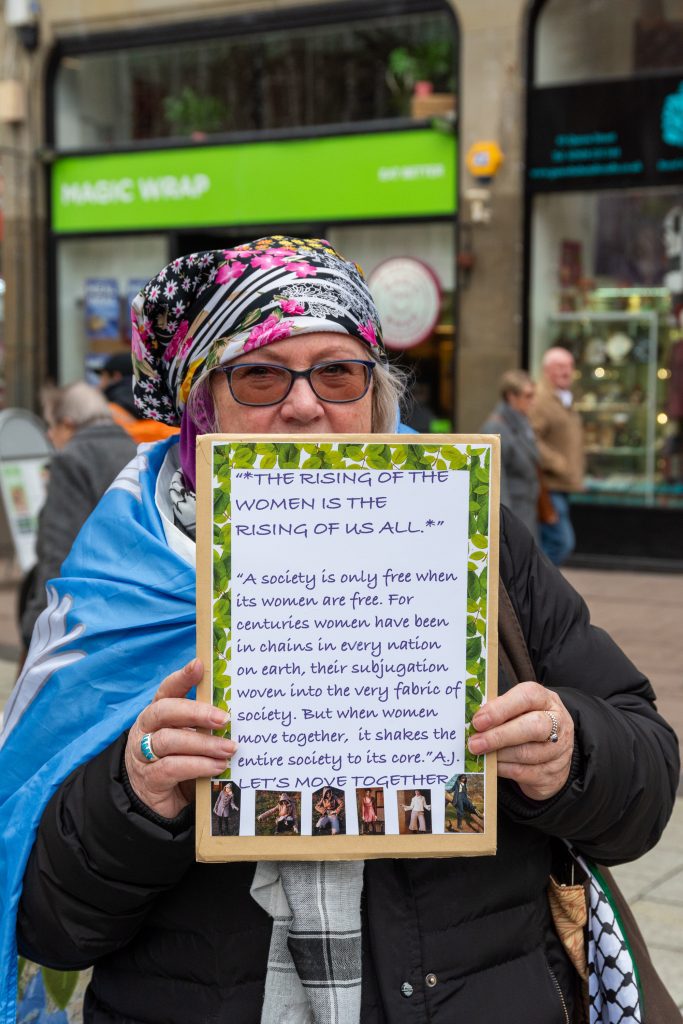 MAGIC WRAP
EAT BETTER
"*THE RISING OF THE
WOMEN IS THE
RISING OF US ALL.*"
"A society is only free when
its women are free. For
centuries women have been
in chains in every nation
on earth, their subjugation
woven into the very fabric of
society. But when women
move together, it shakes the
entire society to its core."A.J.
LET'S MOVE TOGETHER